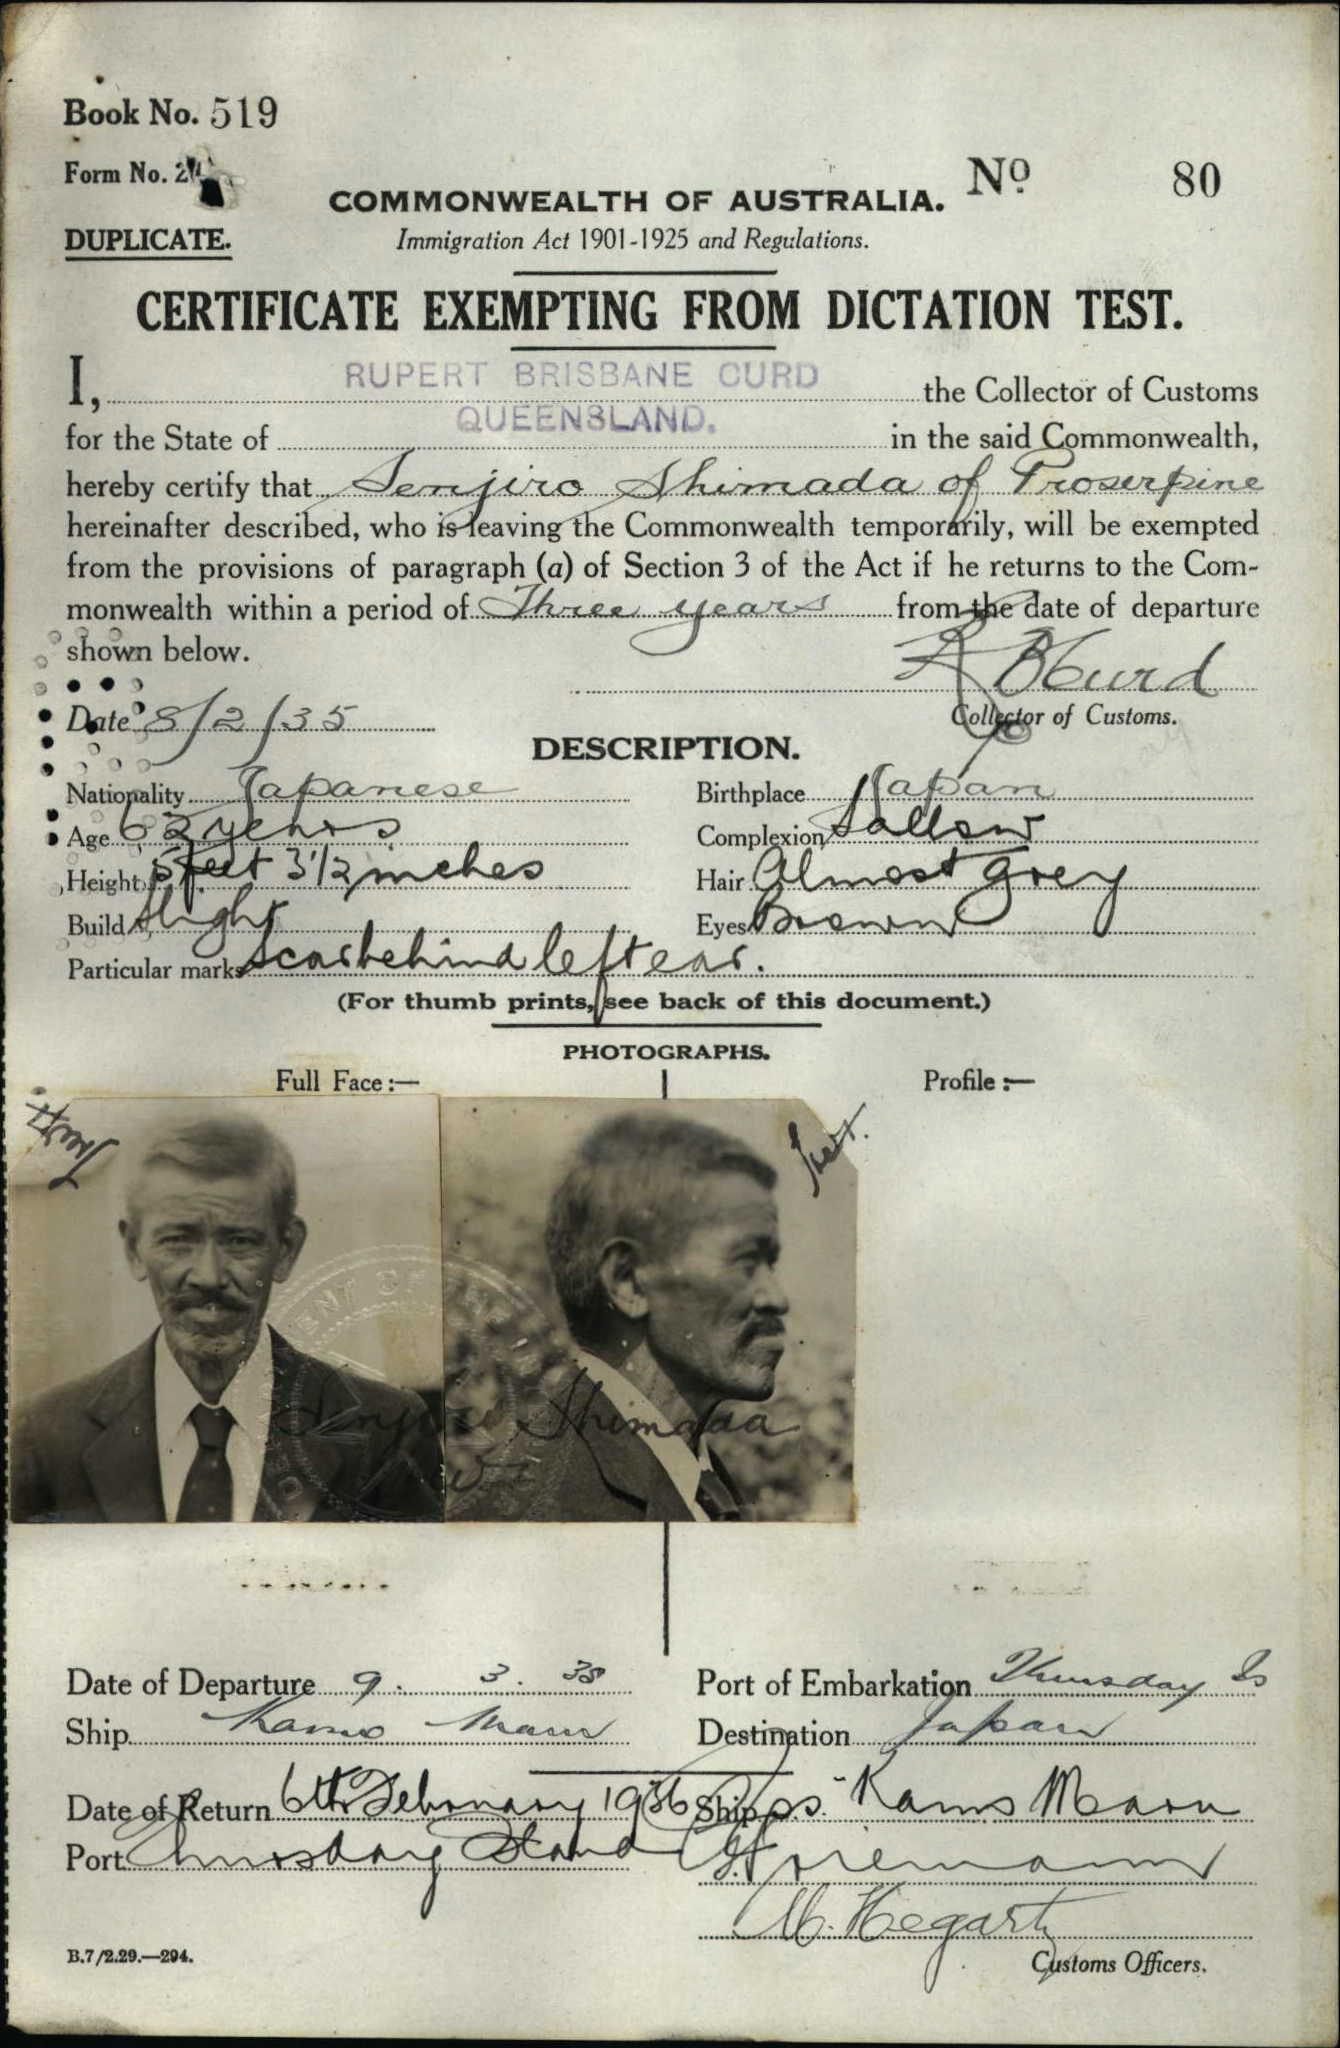 Book No. 519
Form No. 2
No 80
COMMONWEALTH OF AUSTRALIA.
DUPLICATE.
Immigration Act 1901-1925 and Regulations.
CERTIFICATE EXEMPTING FROM DICTATION TEST.
I, RUPERT BRISBANE CURD the Collector of Customs
for the State of QUEENSLAND. in the said Commonwealth,
hereby certify that Senjiro Shimada of Proserpine
hereinafter described, who is leaving the Commonwealth temporarily, will be exempted
from the provisions of paragraph (a) of Section 3 of the Act if he returns to the Com-
monwealth within a period of Three years from the date of departure
shown below.
R B Curd
Date 8/2/35
Collector of Customs.
DESCRIPTION.
Nationality Japanese Birthplace Japan
Age 62 years Complexion Sallow
Height 5 feet 3 1/2 inches Hair Almost grey
Build Slight Eyes Brown
Particular marks Scar behind left ear.
(For thumb prints, see back of this document.)
PHOTOGRAPHS.
Full Face:— Profile:—
Senjiro Shimada
Date of Departure 9. 3. 35 Port of Embarkation Thursday Is
Ship Kamo Maru Destination Japan
Date of Return 6th February 1936 Ship s.s. Kamo Maru
Port Thursday Island
M. Hegarty
B.7/2.29.—294.
Customs Officers.